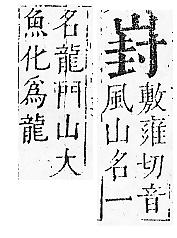 崶
敷雍切音
風山名一
名龍門山大
魚化爲龍